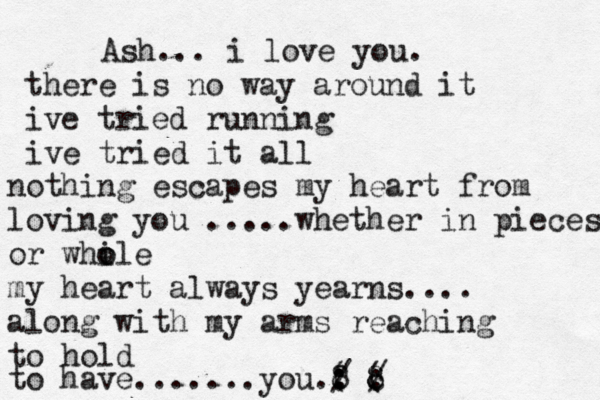 Ash... i love you.
there is no way around it
ive tried running
ive tried it all
nothing escapes my heart from
loving you .....whether in pieces
or whole
my heart always yearns....
along with my arms reaching
to hold
to have.......you.